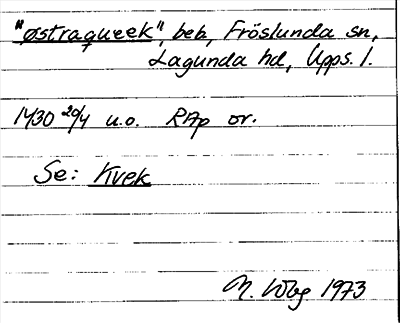 "østraqueek", beb, Fröslunda sn,
Lagunda hd, Upps. l.
1430 20/4 u.o. RAp or.
Se: Kvek
1973